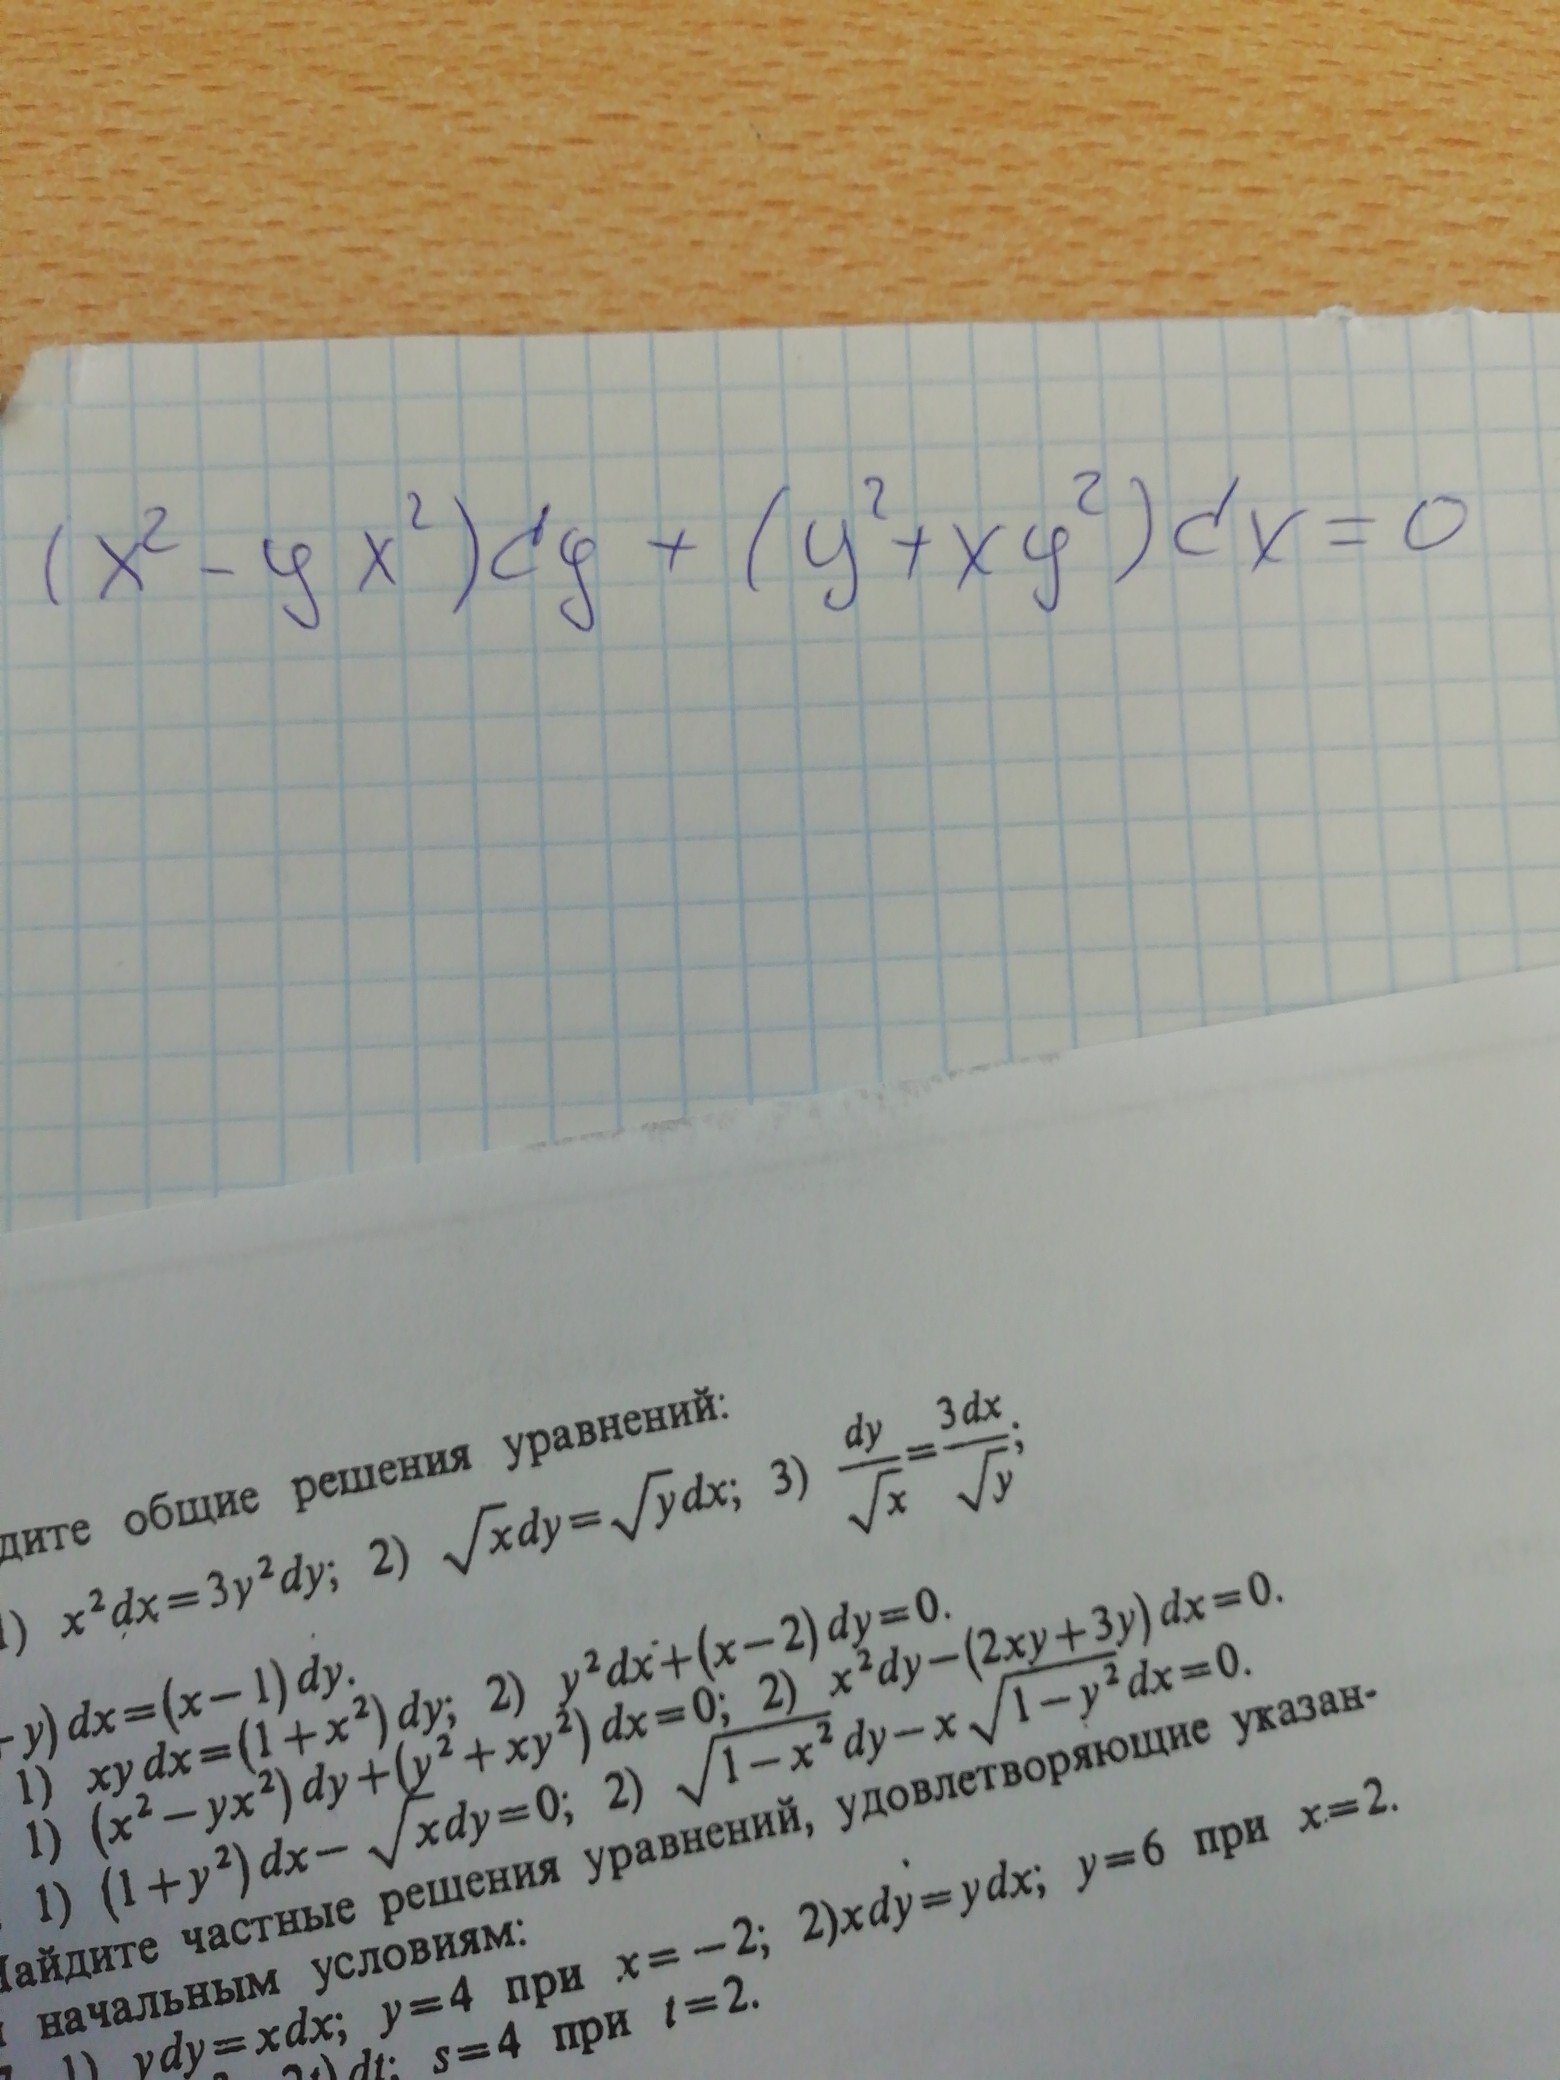 (x² - yx²)dy + (y² + xy²)dx = 0
дите общие решения уравнений:
1) x²dx=3y²dy; 2) √x dy=√y dx; 3) dy/√x = 3dx/√y;
y) dx=(x−1) dy.
1) xy dx=(1+x²) dy; 2) y²dx+(x−2) dy=0.
1) (x²−yx²) dy+(y²+xy²) dx=0; 2) x²dy−(2xy+3y) dx=0.
1) (1+y²) dx−√x dy=0; 2) √(1−x²) dy−x√(1−y²) dx=0.
Найдите частные решения уравнений, удовлетворяющие указан-
начальным условиям:
1) ydy=xdx; y=4 при x=−2; 2)xdy=ydx; y=6 при x=2.
2t) dt; s=4 при t=2.